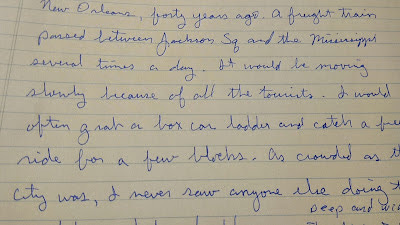 New Orleans, forty years ago. A freight train
passed between Jackson Sq and the Mississippi
several times a day. It would be moving
slowly because of all the tourists. I would
often grab a box car ladder and catch a free
ride for a few blocks. As crowded as the
city was, I never saw anyone else doing
Deep and